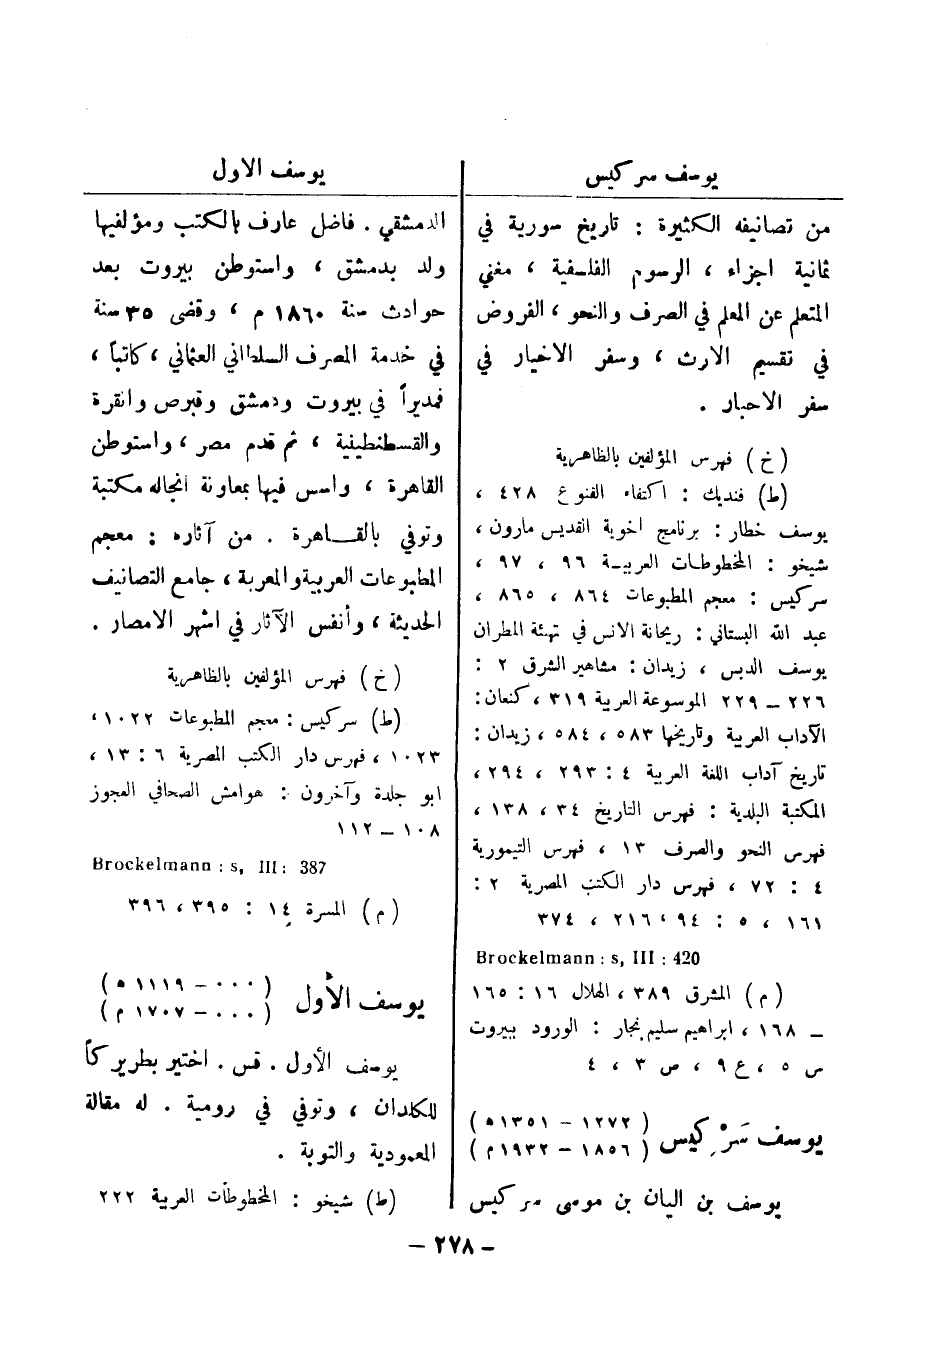 يوسف سركيس
من تصانيفه الكثيرة : تاريخ سورية في
ثمانية اجزاء ، الرسوم الفلسفية ، مغني
المتعلم عن المعلم في الصرف والنحو ، الفروض
في تقسيم الارث ، وسفر الاخيار في
سفر الاحبار .
(خ) فهرس المؤلفين بالظاهرية
(ط) فنديك : اكتفاء القنوع ٤٢٨ ،
يوسف خطار : برنامج اخوية القديس مارون ،
شيخو : المخطوطات العربية ٩٦ ، ٩٧ ،
سركيس : معجم المطبوعات ٨٦٤ ، ٨٦٥ ،
عبد الله البستاني : ريحانة الانس في تهنئة المطران
يوسف الدبس ، زيدان : مشاهير الشرق ٢ :
٢٢٦ – ٢٢٩ الموسوعة العربية ٣١٩ ، كنعان :
الآداب العربية وتاريخها ٥٨٣ ، ٥٨٤ ، زيدان :
تاريخ آداب اللغة العربية ٤ : ٢٩٣ ، ٢٩٤ ،
المكتبة البلدية : فهرس التاريخ ٣٤ ، ١٣٨ ،
فهرس النحو والصرف ١٣ ، فهرس التيمورية
٤ : ٧٢ ، فهرس دار الكتب المصرية ٢ :
١٦١ ، ٥ : ٩٤ ، ٢١٦ ، ٣٧٤
Brockelmann : s, III : 420
(م) المشرق ٣٨٩ ، الهلال ١٦ : ١٦٥
– ١٦٨ ، ابراهيم سليم نجار : الورود بيروت
س ٥ ، ع ٩ ، ص ٣ ، ٤
يوسف سَرْكيس (١٢٧٢ – ١٣٥١ ه)
(١٨٥٦ – ١٩٣٢ م)
يوسف بن اليان بن موسى سركيس
يوسف الاول
الدمشقي . فاضل عارف بالكتب ومؤلفيها
ولد بدمشق ، واستوطن بيروت بعد
حوادث سنة ١٨٦٠ م ، وقضى ٣٥ سنة
في خدمة المصرف السلطاني العثماني ، كاتباً ،
فمديراً في بيروت ودمشق وقبرص وانقرة
والقسطنطينية ، ثم قدم مصر ، واستوطن
القاهرة ، واسس فيها بمعاونة انجاله مكتبة
وتوفي بالقاهرة . من آثاره : معجم
المطبوعات العربية والمعربة ، جامع التصانيف
الحديثة ، وأنفس الآثار في اشهر الامصار .
(خ) فهرس المؤلفين بالظاهرية
(ط) سركيس : معجم المطبوعات ١٠٢٢ ،
١٠٢٣ ، فهرس دار الكتب المصرية ٦ : ١٣ ،
ابو جلدة وآخرون : هوامش الصحافي العجوز
١٠٨ – ١١٢
Brockelmann : s, III : 387
(م) المسرة ١٤ : ٣٩٥ ، ٣٩٦
يوسف الأول (٠٠٠ – ١١١٩ ه)
(٠٠٠ – ١٧٠٧ م)
يوسف الأول . قس . اختير بطريركاً
للكلدان ، وتوفي في رومية . له مقالة
المعمودية والتوبة .
(ط) شيخو : المخطوطات العربية ٢٢٢
– ٢٧٨ –